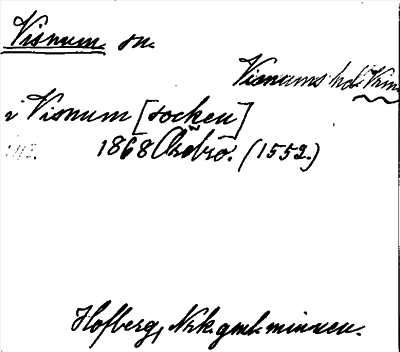 Visnum sn.
Visnums hd. Vrm.
i Visnum [socken]
1868 Örebro. (1552.)
Hofberg, Nrk. gml. minnen.